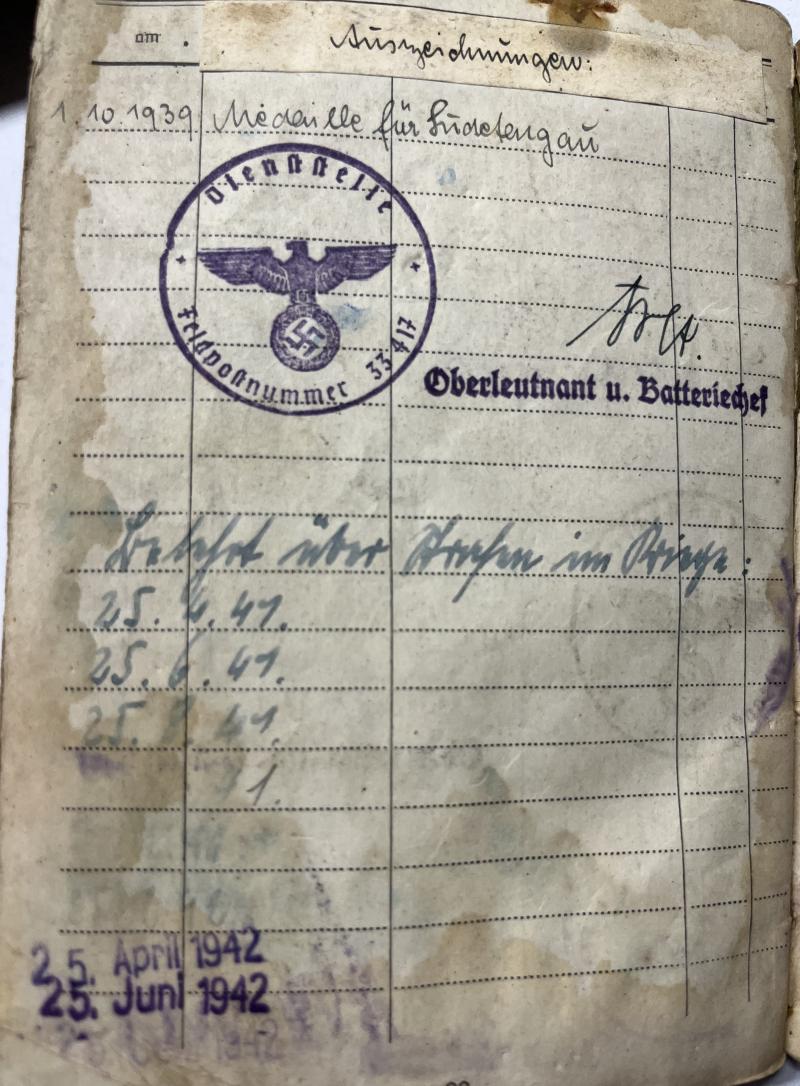 am .
Auszeichnungen:
1.10.1939 Medaille für Sudetengau
Dienststelle
Feldpostnummer 33417
Oberleutnant u. Batteriechef
Belehrt über Strafen im Kriege:
25. 4. 41.
25. 6. 41.
25. 8. 41.
1.
25. April 1942
25. Juni 1942
1942